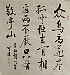 众鸟高飞尽
孤云独去闲相
看两不厌只有
敬亭山